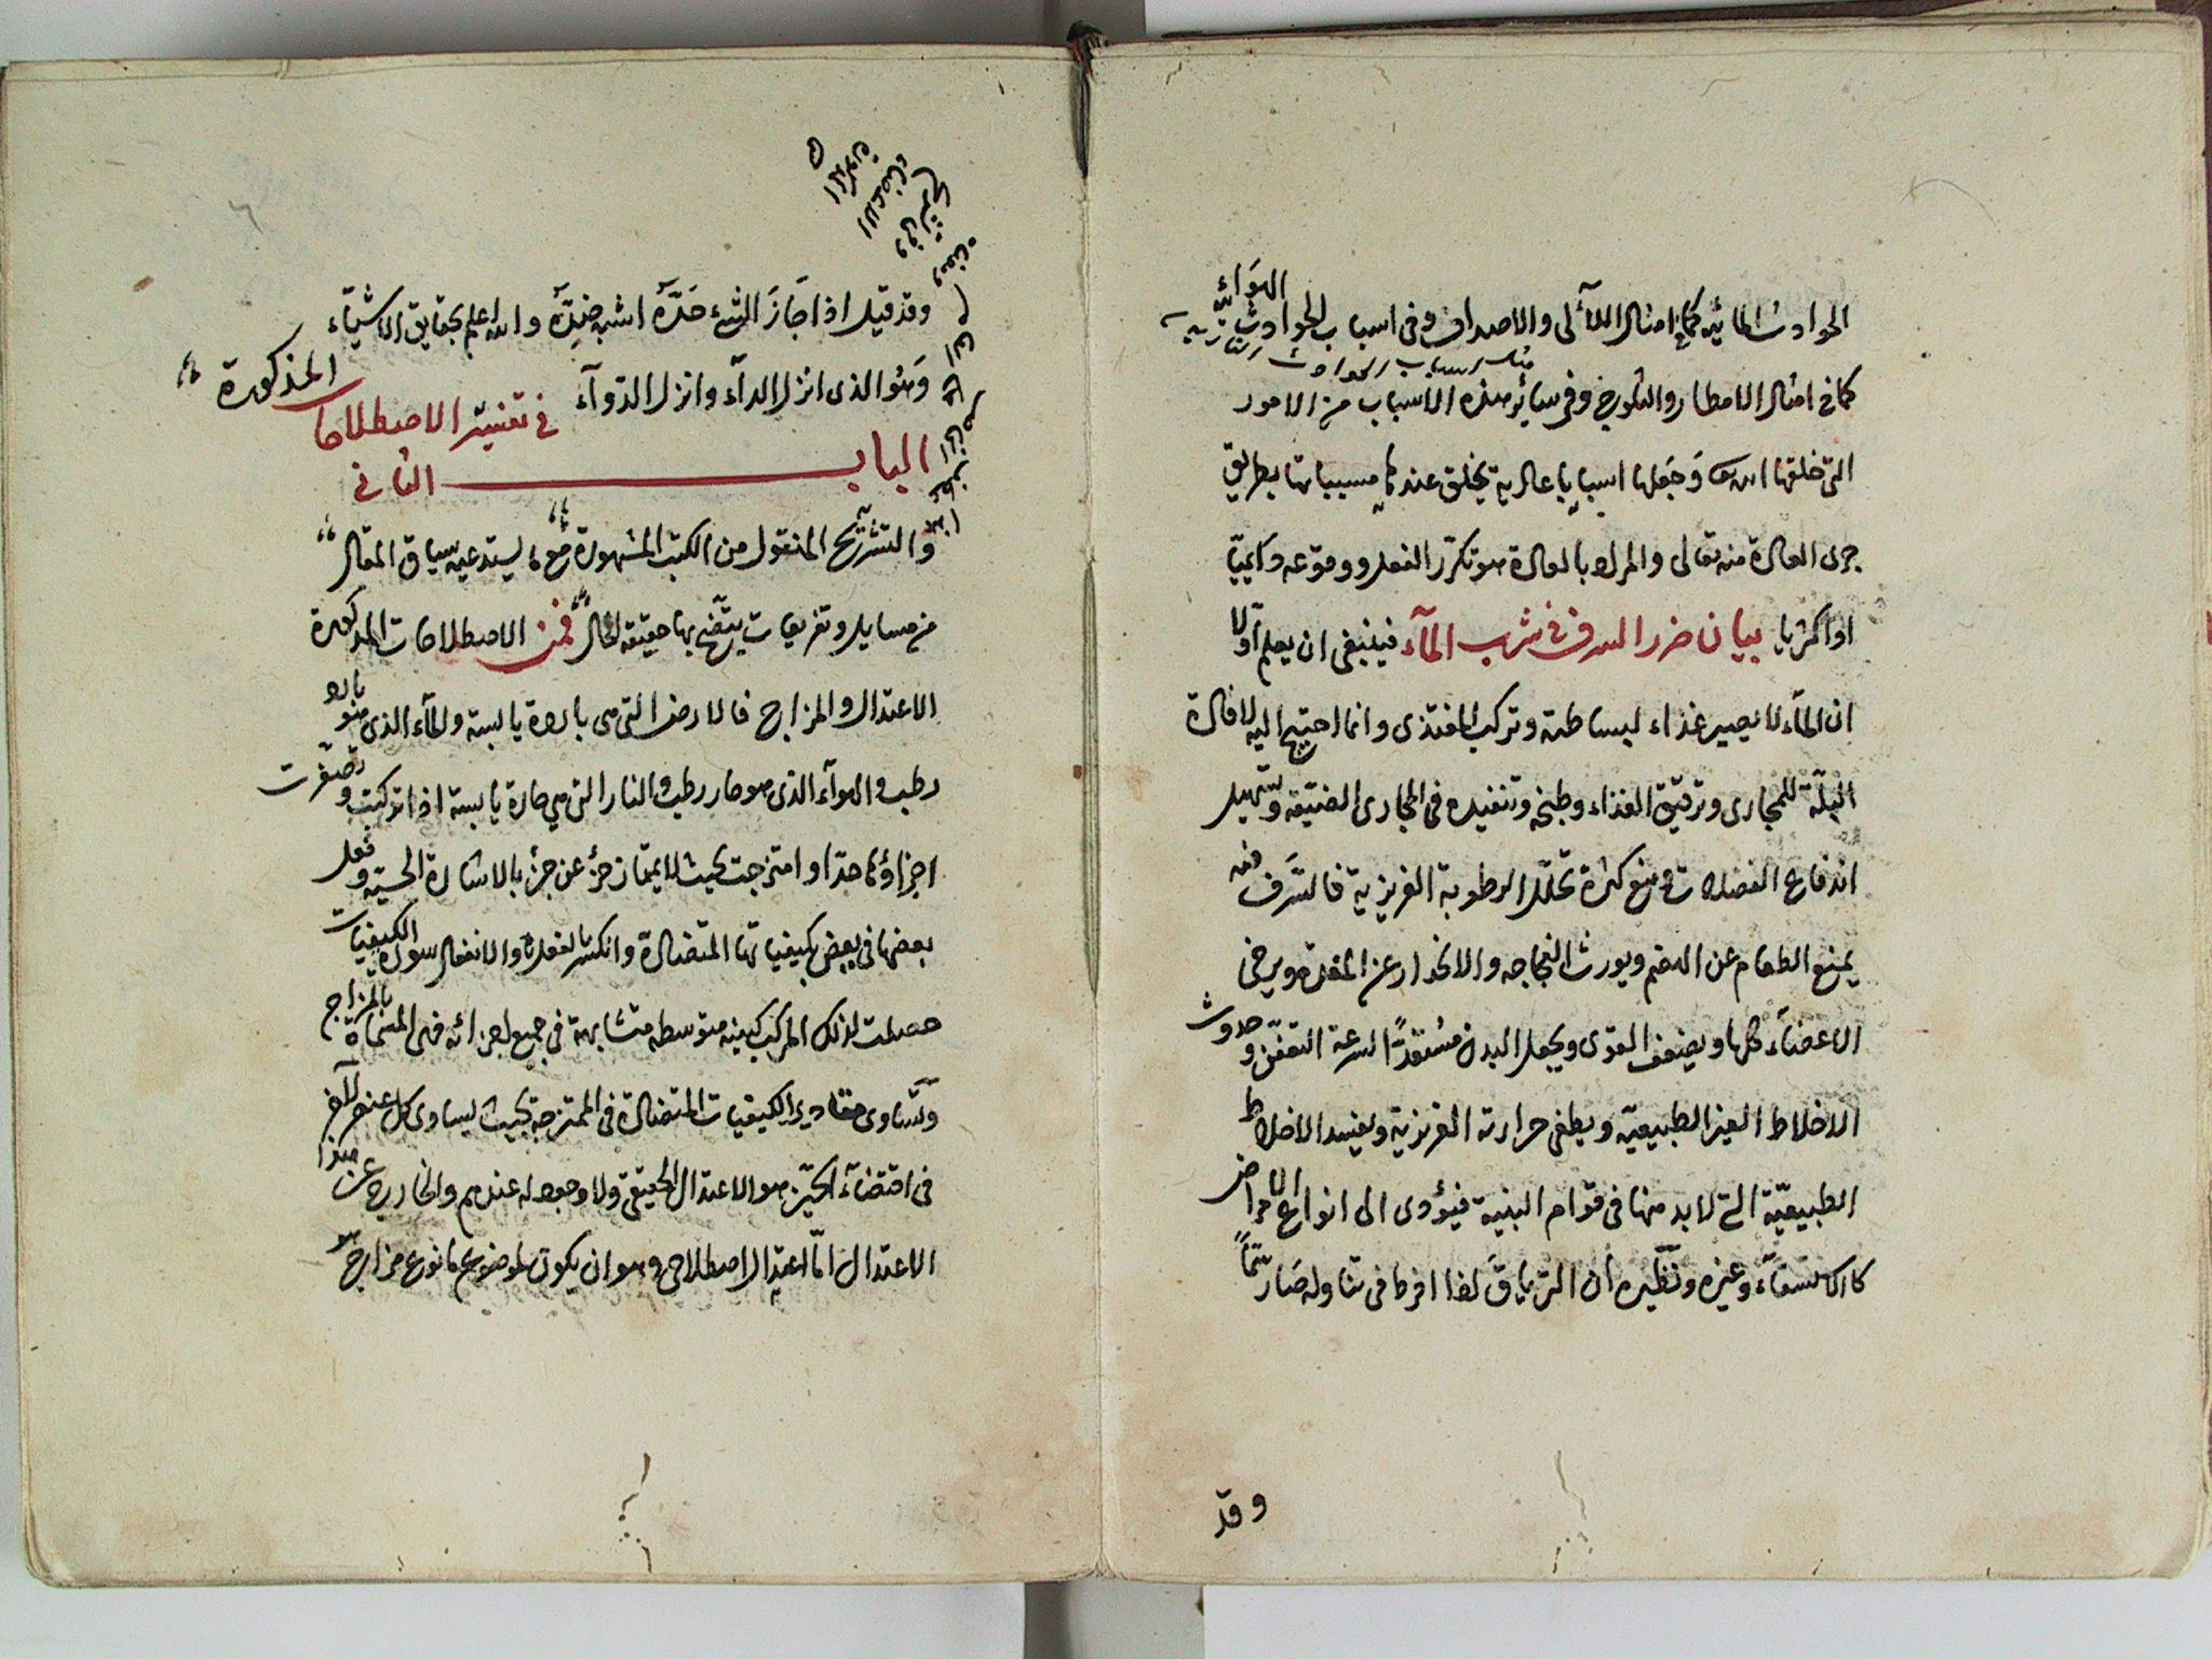 الحوادث المائية كما في امثال اللآلى والاصداف وفى اسباب الحوادث الهوائية
كما فى امثال الامطار والثلوج وفى سائر هذه الاسباب من الامور
التى خلقها الله وَجَعلها اسبابا عادية يخلق عندها مسبباتها بطريق
جرى العادة منه تعالى والمراد بالعادة هو تكرّر الفعل ووقوعه دائميّا
او اكثريا بيان ضرر السرف فى شرب المآء فينبغى ان يعلم اوّلا
ان المآء لا يصير غذاء لبساطته وتركب المغتذى وانما احتيج اليه لافادة
البلّة للمجارى وترقيق الغذاء وطبخه وتنفيذه فى المجارى الضيّقة وتسهيل
اندفاع الفضلات ومنع كثرة تحلّل الرطوبة الغريزية فالسَّرف منه
يمنع الطعام عن الهضم ويورث الفجاجه والانحدار عن المعدة ويرخى
الاعضآء كلها ويضعف القوى ويجعل البدن مُستعدًّا لسرعة التعفّن وحدوث
الاخلاط الغير الطبيعيّة ويطفى حرارته الغريزية ويفسد الاخلاط
الطبيعيّة التى لابد منها فى قوام البنية فيؤدى الى انواع الامراض
كالاستسقآء وغيره ونظيره ان الترياق اذا افرط فى تناوله صَار سّمًّا
وقد
وقد قيل اذا جَازَ الشىء حَدَّهُ اشبه ضِدَّهُ والله اعلم بحقايق الاشيآء
وَهُوَ الذى انزل الدآء وانزل الدّوآء
الباب الثانى فى تفسير الاصطلاحات المذكورة
والتشريح المنقول من الكتب المشهورة مع ما يستدعيه سياق المقال
من مسايل وتفريعات يتّضح بها حقيقة الحال فمن الاصطلاحات المذكورة
الاعتدال والمزاج فالارض التى هى باردة يابسة والمآء الذى هو بارد
رطب والهوآء الذى هو حار رطب والنار التى هى حارة يابسة اذا تركبت وتصغرت
اجزاؤها جدّا وامتزجت بحيث لا يمتاز جزءٌ عن جزءٍ بالاشارة الحسّيّة وفعل
بعضها فى بعض بكيفياتها المتضادّة وانكسر بالفعل والانفعال سورة الكيفيات
حصلت لذلك المركب كيفية متوسطة متشابهة فى جميع اجزائه فهى المسمّاة بالمزاج
وتساوى مقادير الكيفيات المتضادّة فى الممتزجة بحيث يساوى كل عنصر للآخر
فى اقتضآء الحيّز هو الاعتدال الحقيقى ولا وجود له عندهم والخارج عن هذا
الاعتدال امّا اعتدال اصطلاحى وهو ان يكون لموضوع ما نوع مزاج هو